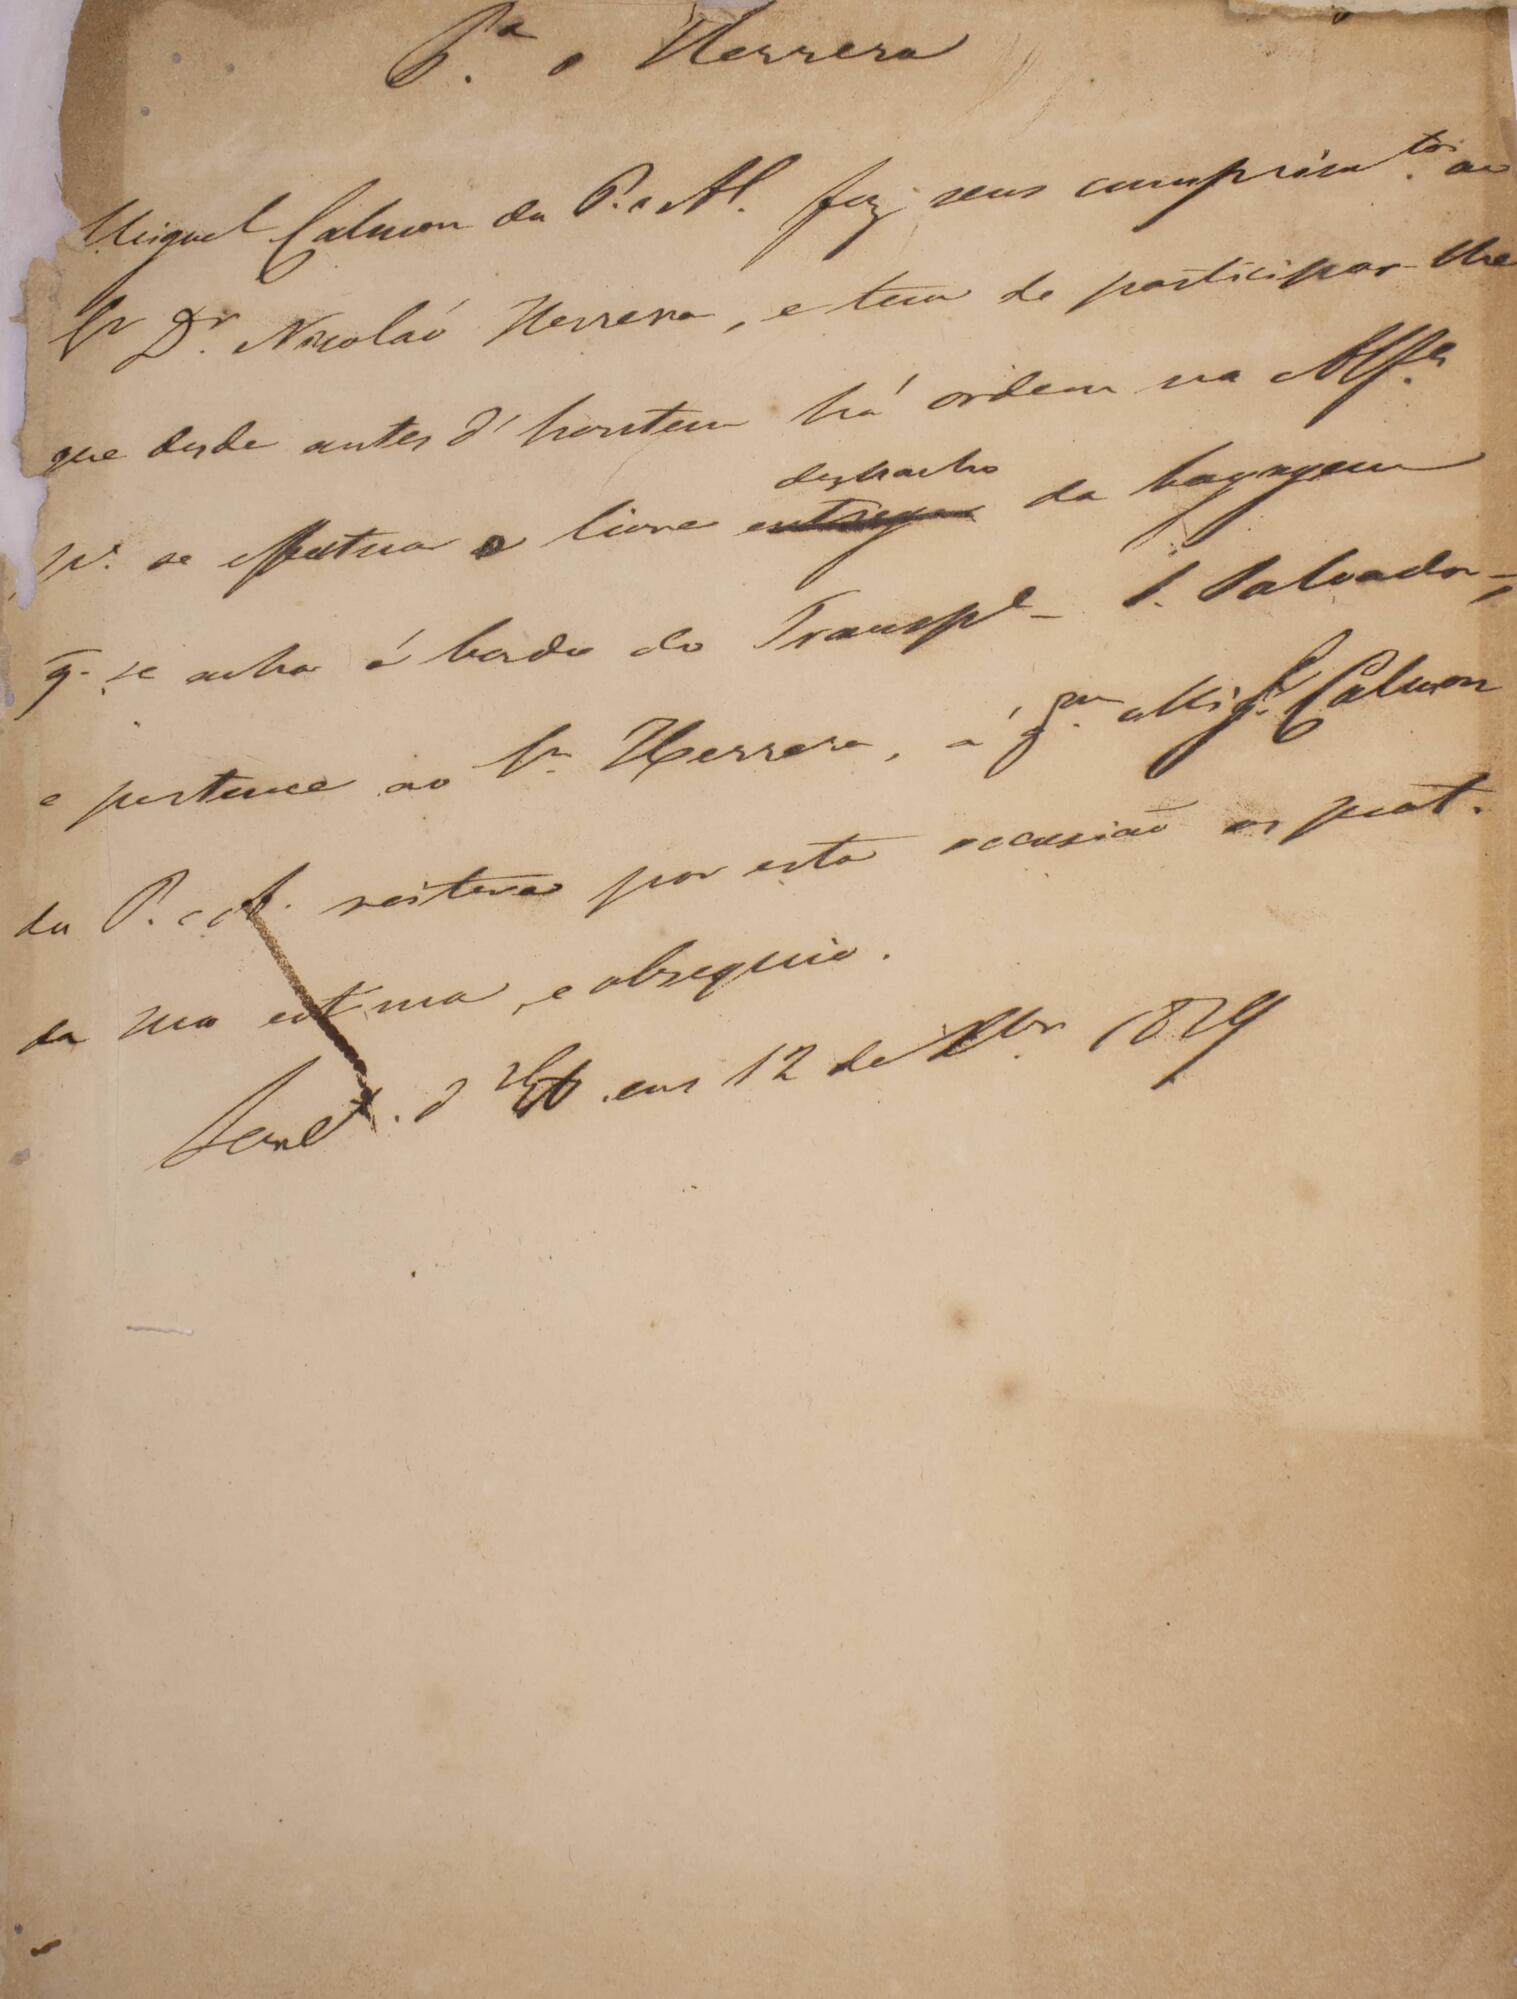 P.ª o Herrera
Miguel Calmon du P. e Al. faz seus comprim.tos ao
Sr Dr. Nicoláo Herrera, e tem de participar-lhe
que desde antes d'hontem há ordem na Alf.ª
despacho
p.ª se effectuar o livre entrega da bagagem
q. se acha á bordo do Transp.e - S. Salvador -,
e pertence ao Sr. Herrera, a q.m Mig.l Calmon
du P. e Al. reitera por esta occasião os prot.
da sua estima, e obsequio.
em 12 de 1829